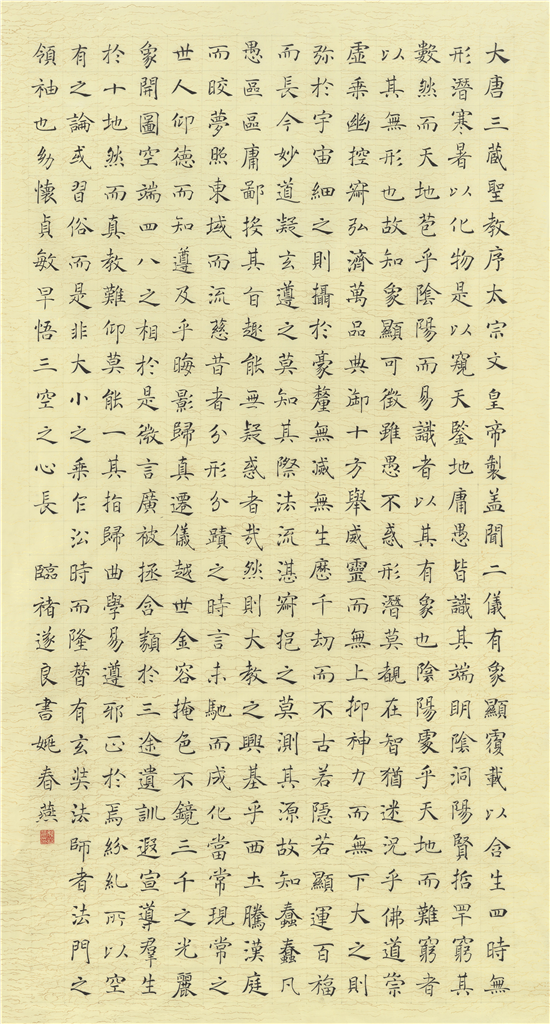 大唐三蔵聖教序太宗文皇帝製盖聞二儀有象顯覆載以含生四時無
形潛寒暑以化物是以窺天鑒地庸愚皆識其端明陰洞陽賢哲罕窮其
數然而天地苞乎陰陽而易識者以其有象也陰陽處乎天地而難窮者
以其無形也故知象顯可徵雖愚不惑形潛莫覩在智猶迷況乎佛道崇
虛乗幽控寂弘濟萬品典御十方舉威靈而無上抑神力而無下大之則
弥於宇宙細之則攝於豪釐無滅無生歷千劫而不古若隱若顯運百福
而長今妙道凝玄遵之莫知其際法流湛寂挹之莫測其源故知蠢蠢凡
愚區區庸鄙投其旨趣能無疑惑者哉然則大教之興基乎西土騰漢庭
而皎夢照東域而流慈昔者分形分蹟之時言未馳而成化當常現常之
世人仰德而知遵及乎晦影歸真遷儀越世金容掩色不鏡三千之光麗
象開圖空端四八之相於是微言廣被拯含類於三途遺訓遐宣導羣生
於十地然而真教難仰莫能一其指歸曲學易遵邪正於焉紛糺所以空
有之論或習俗而是非大小之乗乍沿時而隆替有玄奘法師者法門之
領袖也幼懷貞敏早悟三空之心長 臨褚遂良書姚春燕